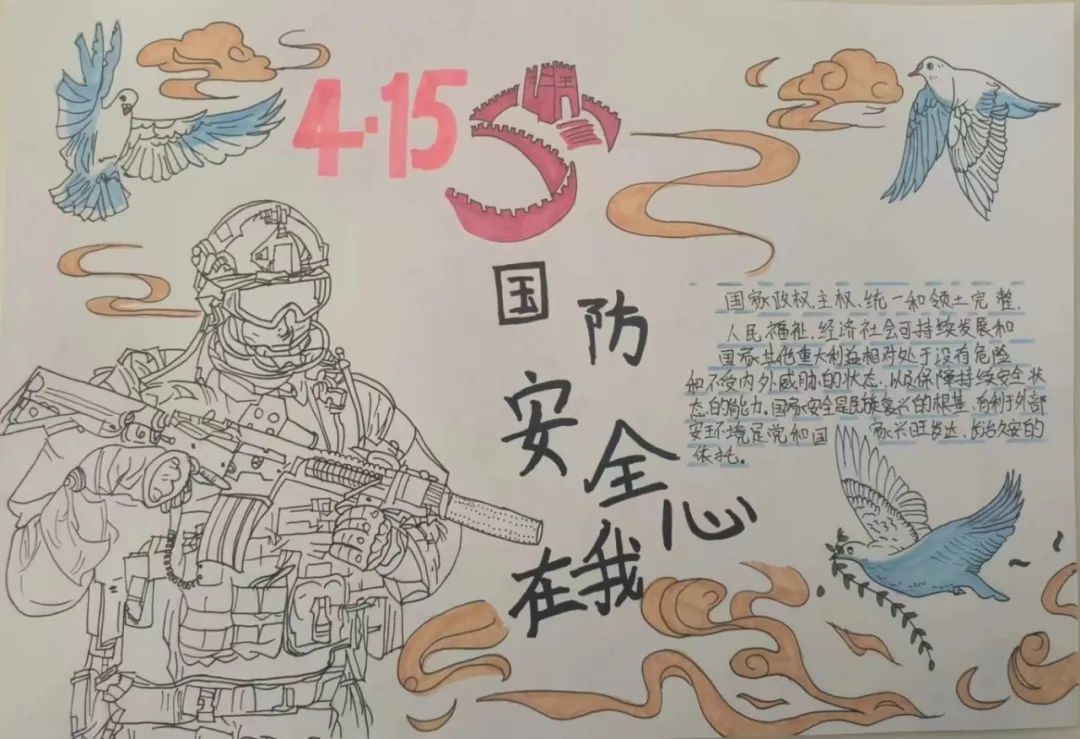 4·15
国防
安全心
在我
国家政权、主权、统一和领土完整、
人民福祉、经济社会可持续发展和
国家其他重大利益相对处于没有危险
和不受内外威胁的状态、以及保障持续安全状
态的能力。国家安全是民族复兴的根基、有利于外部
安全环境是党和国 家兴旺发达、长治久安的
依托。